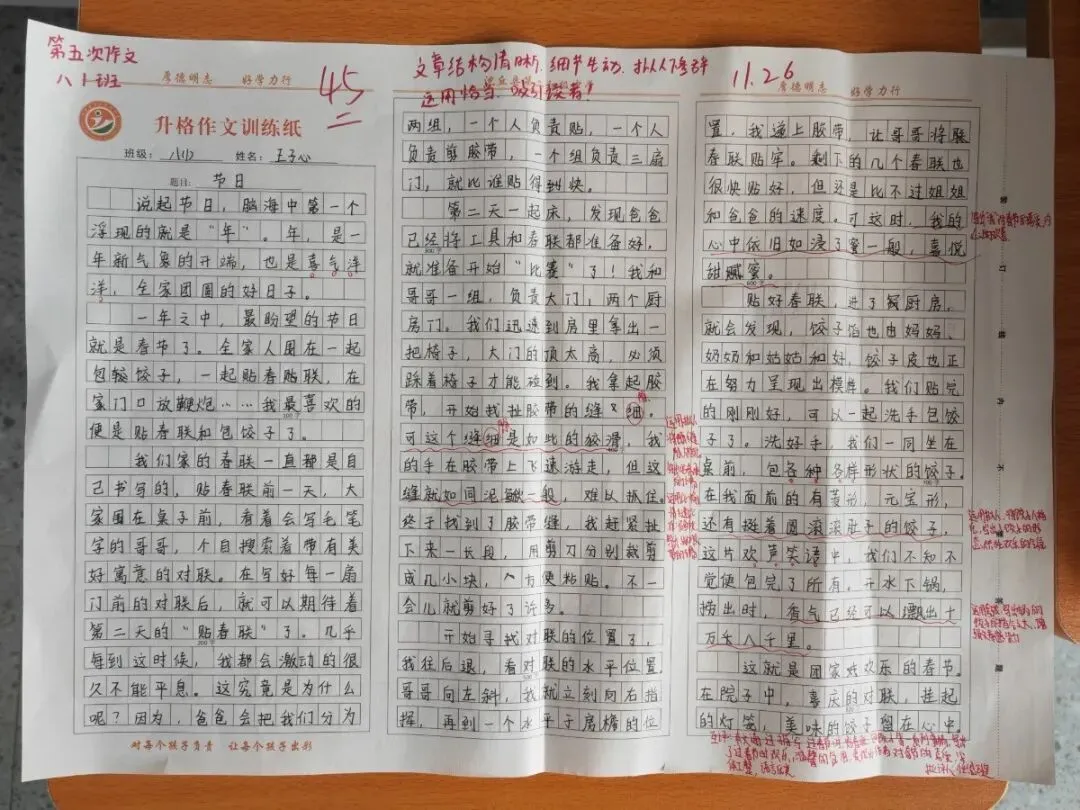 第五次作文
八、1班
厚德明志 好学力行
45
二
升格作文训练纸
班级: 八(1) 姓名: 王子心
题目: 节日
说起节日，脑海中第一个
浮现的就是“年”。年，是一
年新气象的开端，也是喜气洋
洋，全家团圆的好日子。
一年之中，最盼望的节日
就是春节了。全家人围在一起
包饺子，一起贴春贴联，在
家门口放鞭炮……我最喜欢的
便是贴春联和包饺子了。
我们家的春联一直都是自
己书写的，贴春联前一天，大
家围在桌子前，看着会写毛笔
字的哥哥，个自搜索着带有美
好寓意的对联。在写好每一扇
门前的对联后，就可以期待着
第二天的“贴春联”了。几乎
每到这时候，我都会激动的很
久不能平息。这究竟是为什么
呢？因为，爸爸会把我们分为
对每个孩子负责 让每个孩子出彩
文章结构清晰、细节生动、拟人修辞
运用恰当、吸引读者！
两组，一个人负责贴，一个人
负责剪胶带，一个组负责三扇
门，就比谁贴得到快。
第二天一起床，发现爸爸
已经将工具和春联都准备好，
就准备开始“比赛”了！我和
哥哥一组，负责大门，两个厨
房门。我们迅速到房里拿出一
把椅子，大门的顶太高，必须
踩着椅子才能碰到。我拿起胶
带，开始找扯胶带的缝细。
可这个缝细是如此的狡滑，我
的手在胶带上飞速游走，但这
缝就如同泥鳅一般，难以抓住。
终于找到了胶带缝，我赶紧扯
下来一长段，用剪刀分别裁剪
成几小块，方便粘贴。不一
会儿就剪好了许多。
开始寻找对联的位置了，
我往后退，看对联的水平位置。
哥哥向左斜，我就立刻向右指
挥，再到一个水平于房檐的位
11.26
厚德明志 好学力行
置，我递上胶带，让哥哥将联
春联贴牢。剩下的几个春联也
很快贴好，但还是比不过姐姐
和爸爸的速度。可这时，我的
心中依旧如浸了蜜一般，喜悦
甜腻蜜。
贴好春联，进了餐厨房，
就会发现，饺子馅也由妈妈、
奶奶和姑姑和好，饺子皮也正
在努力呈现出模样。我们贴完
的刚刚好，可以一起洗手包饺
子了。洗好手，我们一同坐在
桌前，包各种各样形状的饺子。
在我面前的有菱形，元宝形，
还有挺着圆滚滚肚子的饺子，
这片欢声笑语中，我们不知不
觉便包完了所有。开水下锅，
捞出时，香气已经可以飘出十
万头八千里。
这就是团家欢乐的春节。
在院子中，喜庆的对联，挂起
的灯笼，美味的饺子留在心中。